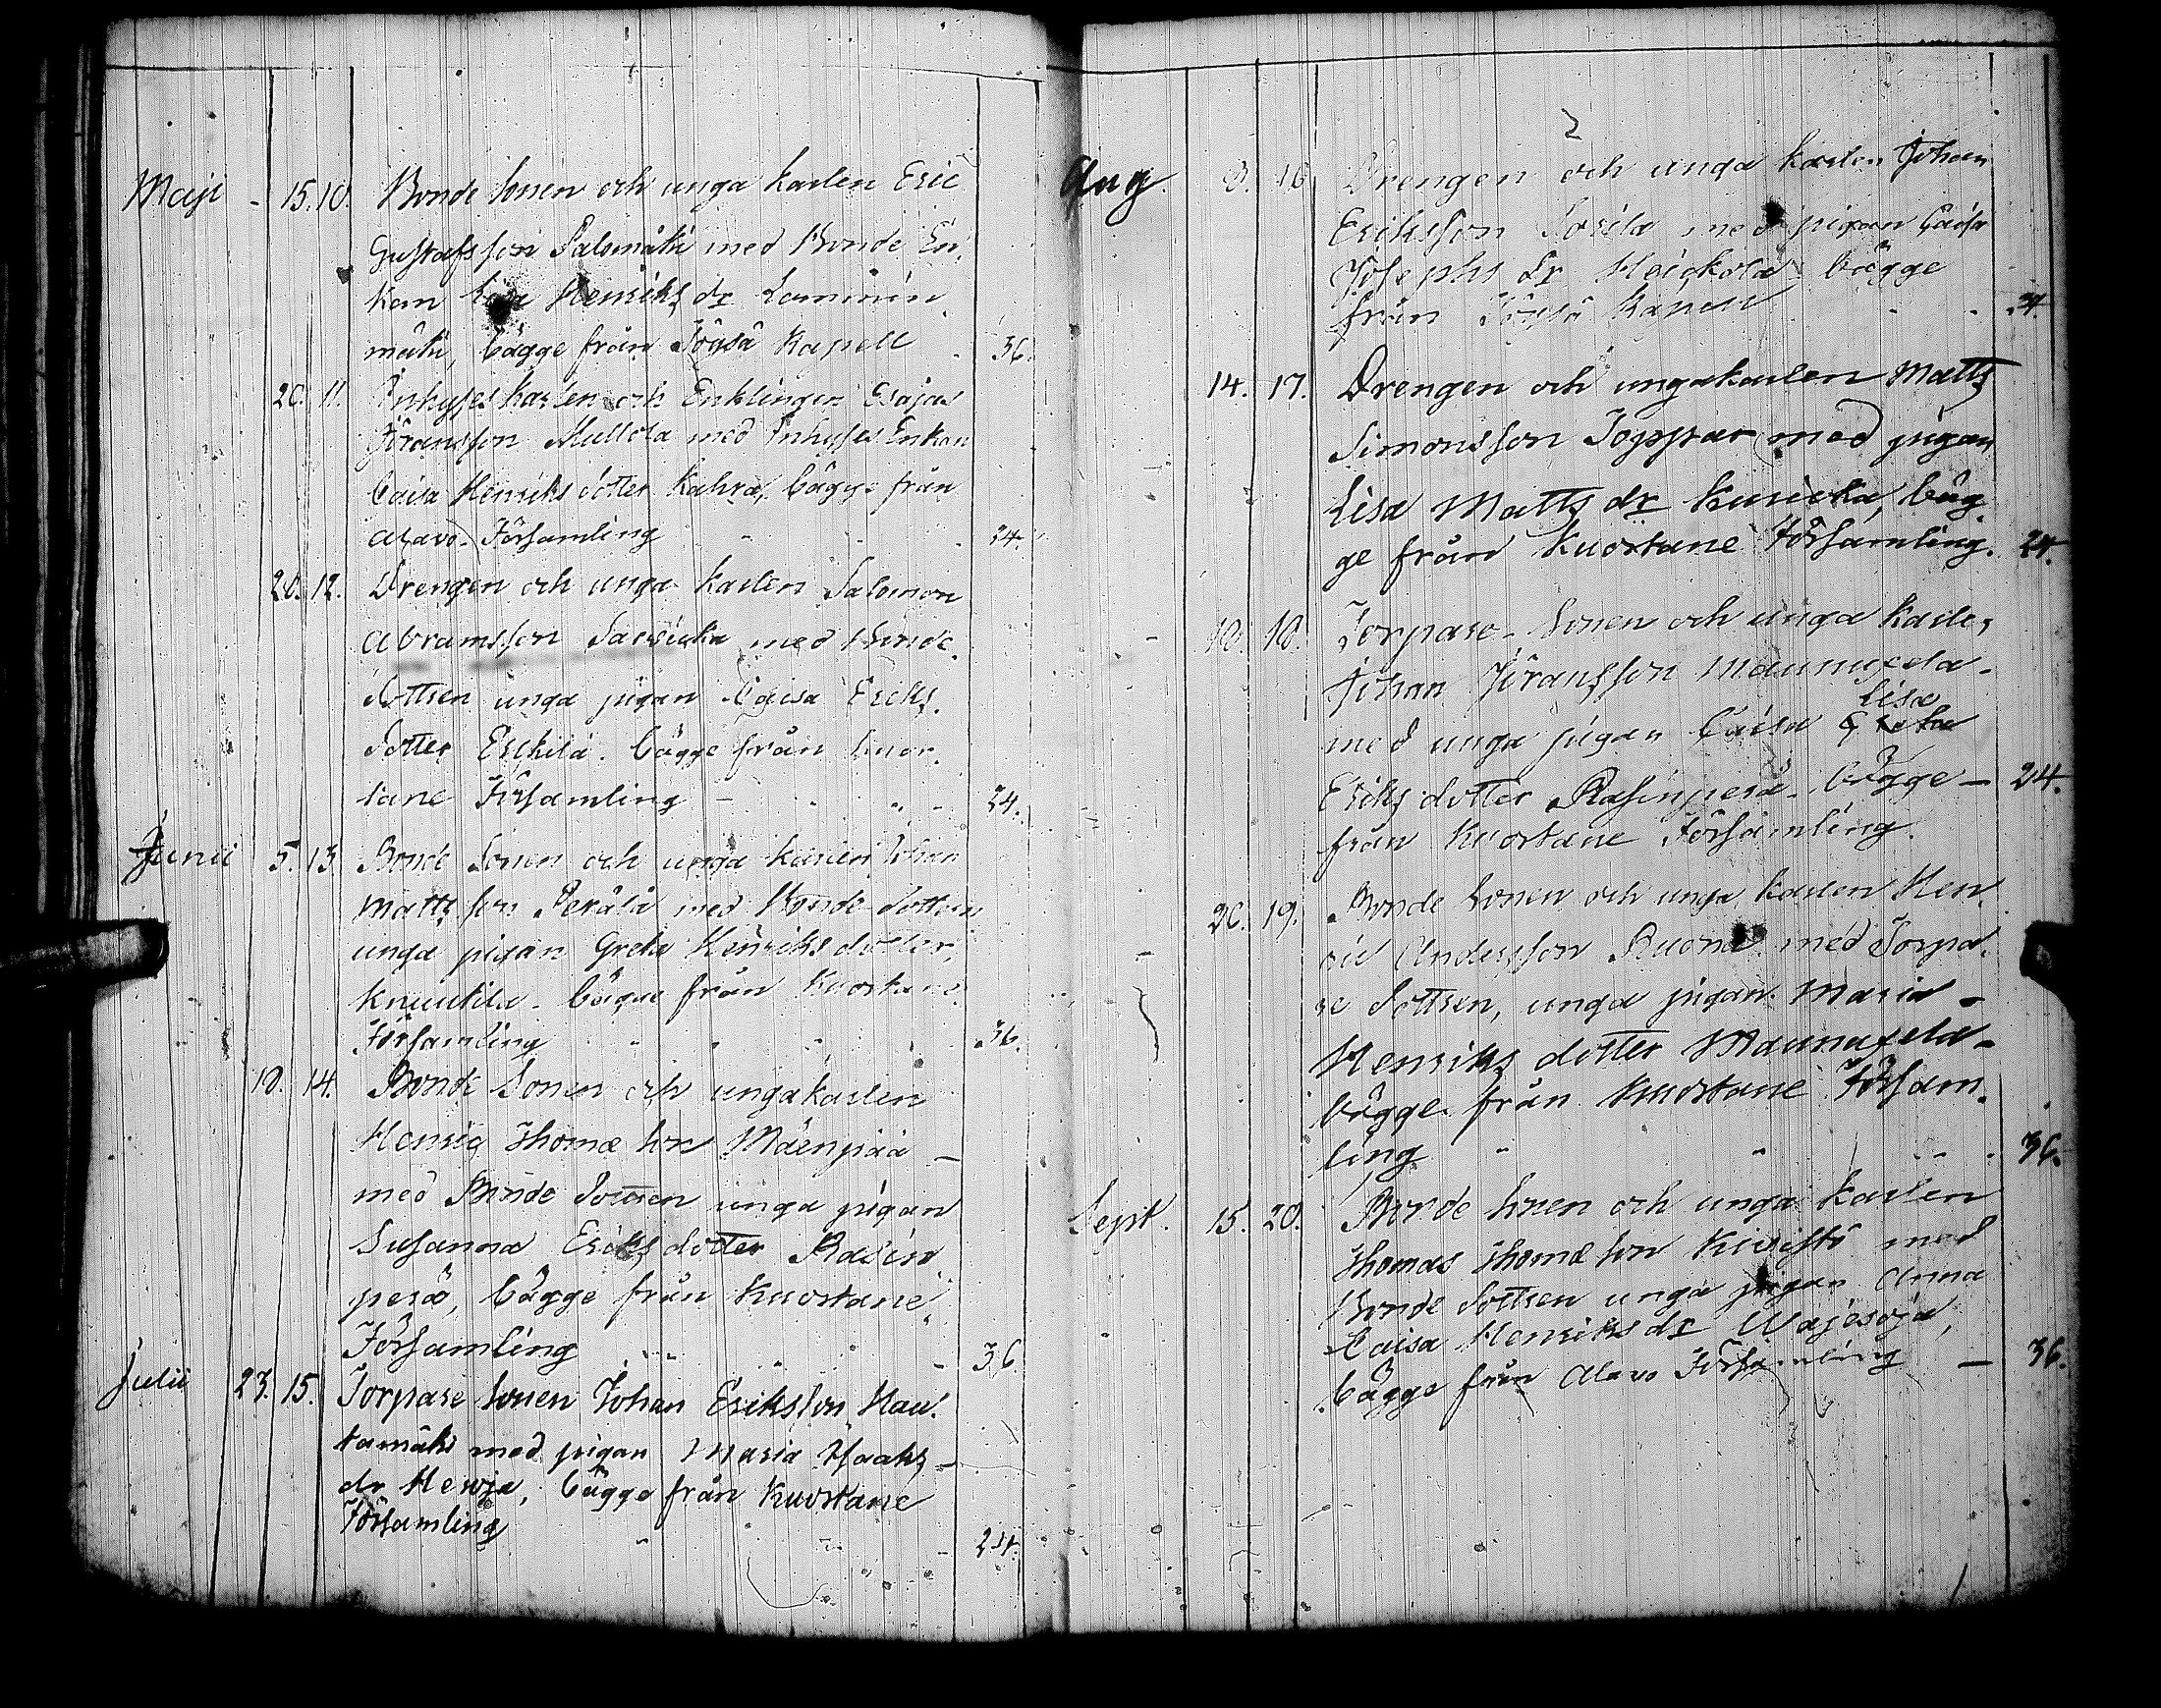 Maji - 15. 10. Bonde Sonen och unga karlen Eric
Gustafsson Salomäki med Bonde En-
kan Henriks dr Lammin
mäki, bägge från Töysä Kapell - 36.
20. 11. Inhyses karlen och Enklingen Esajas
Jöransson Mullola med Inhyses Enkan
Caisa Henriks dotter Kahra, bägge från
Alavo Församling - 24.
28. 12. Drengen och unga karlen Salomon
Abramsson Sarvicka med Bonde
Dottren unga pigan Caisa Ericks
Dotter Erkilä. bägge från Kuor-
tane Församling - 24.
Junii 5. 13. Bonde Sonen och unga karlen Johan
Matts son Perälä med Bonde Dottren
unga pigan Greta Henriks dotter
Knuutila - bägge från Kuortane
Församling 36.
18. 14. Bonde Sonen och ungakarlen
Henric Thomæ son Mäenpää -
med Bonde Dottren unga pigan
Susanna Eriks dotter Rasin
perä, bägge från Kuortane
Församling - 36
Julii 23. 15. Torpare Sonen Johan Eriksson Hau-
tamäki med pigan Maria Isaaks
dr Heroja, bägge från Kuortane
Församling - 24.
2
Aug. 8. 16 Drengen och unga karlen Johan
Eriksson Sorila med pigan Caisa
Josephs dr Heickola bägge
från Töysä Kapell - 24.
14. 17. Drengen och ungakarlen Matts
Simonsson Toppar med pigan
Lisa Matts dr Kuricka, bäg
ge från Kuortane Församling. 24.
18. 18. Torpare Sonen och unga karlen
Johan Jöransson Maunuxela -
Lisa
med unga pigan Caisa Greta
Eriks dotter Rasinperä - bägge - 24.
från Kuortane Församling.
26. 19. Bonde Sonen och unga karlen Hen
ric Andersson Ruona med Torpa-
re Dottren, unga pigan Maria -
Henriks dotter Maunuxela -
bägge från Kuortane Försam-
ling - 36.
Sept. 15. 20. Bonde Sonen och unga karlen
Thomas Thomæ son Kivistö med
Bonde Dottren unga pigan Anna
Caisa Henriks dr Wäjesöja,
bägge från Alavo Församling - 36.